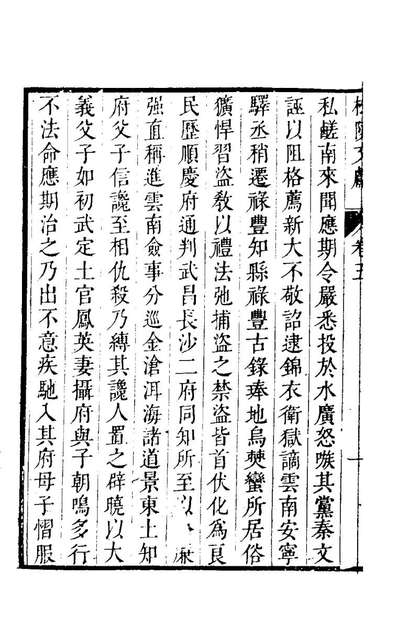 私鹺南來聞應期令嚴悉投於水廣怒嗾其黨秦文
誣以阻格薦新大不敬詔逮錦衣衛獄謫雲南安寧
驛丞稍遷祿豐知縣祿豐古錄琫地烏爨蠻所居俗
獷悍習盜敎以禮法弛捕盜之禁盜皆首伏化為良
民歷順慶府通判武昌長沙二府同知所至以
强直稱進雲南僉事分巡金滄洱海諸道景東土知
府父子信讒至相仇殺乃縛其讒人置之辟曉以大
義父子如初武定土官鳳英妻攝府與子朝鳴多行
不法命應期治之乃出不意疾馳入其府母子慴服
卷五